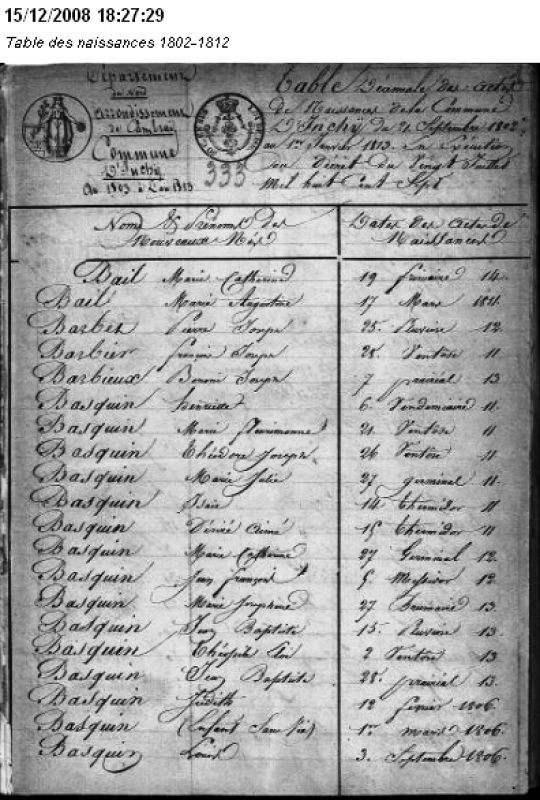 15/12/2008 18:27:29
Table des naissances 1802-1812
Département
du Nord
Arrondissement
de Cambrai
Commune
D'Inchÿ
An 1803 à l'an 1813
Table Décennale des Actes
De Naissances de la Commune
D'Inchÿ, du 21 Septembre 1802
au 1er Janvier 1813. En exécution
du Décret du Vingt Juillet
Mil huit Cent Sept
333
Noms & Prénoms des
Nouveaux Nés
Dates des Actes de
Naissances
Bail Marie Catherine 19 frimaire 14.
Bail Marie Augustine 17 Mars 1811.
Barbet Pierre Joseph 25. Pluviose 12.
Barbier françois Joseph 28. Ventose 11
Barbieux Benoni Joseph 7 prairial 13
Basquin henriette 6 Vendemiaire 11.
Basquin Marie 21. Ventose 11
Basquin Théodore Joseph 26 Ventose 11
Basquin Marie Julie 27 germinal 11.
Basquin Isaïe 14 Thermidor 11
Basquin Désiré Aimé 15 Thermidor 11
Basquin Marie Catherine 27 Germinal 12.
Basquin Jean François 5 Messidor 12.
Basquin Marie Josephine 27 Brumaire 13.
Basquin Jean Baptiste 15. Pluviose 13.
Basquin Théophile 2 Ventose 13
Basquin Jean Baptiste 28. prairial 13.
Basquin Judith 12 février 1806.
Basquin (Enfant Sans Vie) 1er mars 1806.
Basquin Louis 3. Septembre 1806.